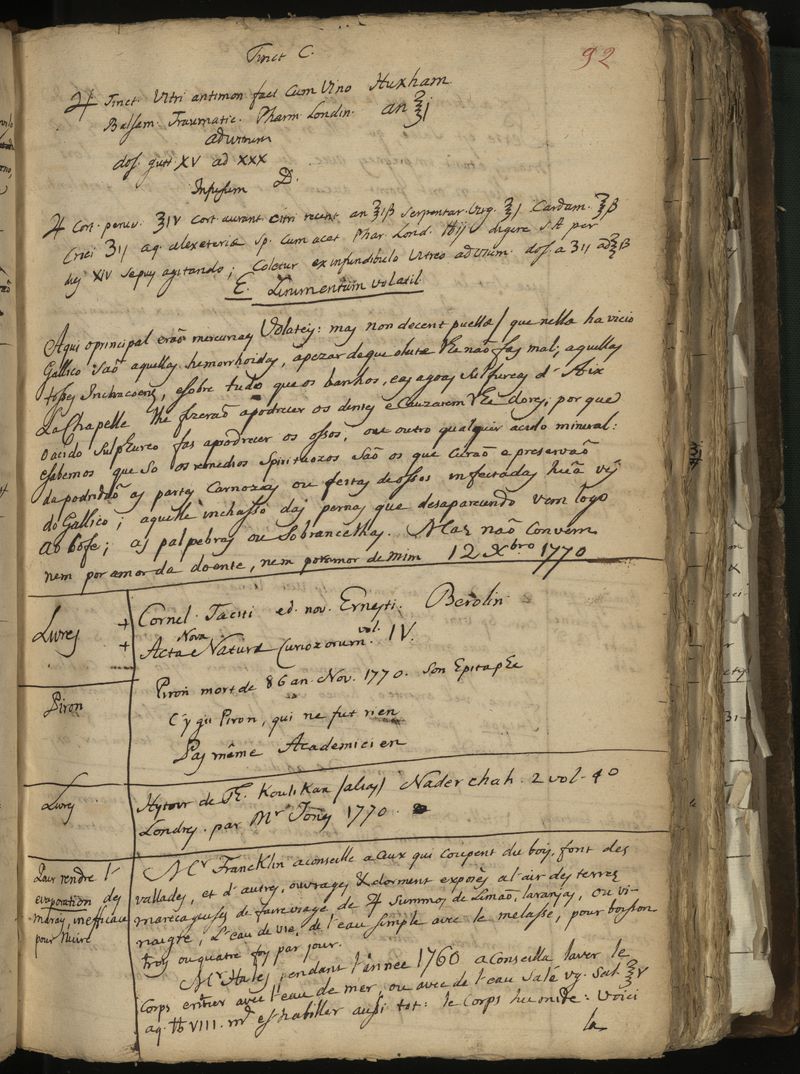 Tinct C.
92
♃ Tinct. Vitri antimon. fact. Cum Vino Huxham
Balsam. Traumatic. Pharm. Londin. an ℥j
ad usum
dos. gutt XV ad XXX
Infusum D.
♃ Cort. peruv. ℥IV Cort. aurant. citri recent. an ℥iβ Serpentar. Virg. ℥j Cardam. ℥β
Croci ʒij aq. alexeteriæ Sp. Cum acet. Phar. Lond. ℔ij digere S. A. per
dies XIV Sepius agitando; Coletur ex infundibulo Vitreo ad usum. dos. a ʒij ad ℥β
E. Linimentum volatil
Aqui o principal erão mercuriaes Volateis: mas non decent puellas / que nella ha vicio
Gallico São aquellas hemorrhoidas, apezar de que
não fas mal; aquellas
tosses Inchacoens, e sobre tudo que os banhos, e as agoas Sulfureas d' Aix
La Chapelle lhe fizerão apodrecer os dentes e Cauzarem lhe dores; por que
o acido Sulphureo fas apodrecer os ossos, ou outro qualquer acido mineral:
e sabemos que So os remedios Spirituozos São os que Curão e preservão
da podridão as partes Carnozas ou feitas de ossos infectadas hũa vez
do Gallico; aquelle inchasso das pernas que desaparecendo vem logo
ao bofe; as palpebras ou Sobrancelhas. Mas não Convem
nem por amor da doente, nem por amor de mim 12 Xbro 1770
Livres
+ Cornel. Taciti ed. nov. Ernesti. Berolin
+ Acta Nova Naturæ Curiozorum. vol. IV.
Piron
Piron mort de 86 an. Nov. 1770. Son Epitaphe
C'y git Piron, qui ne fut rien
Pas même Academicien
Livres
Hystoire de Th. Koulikan (alias) Nader chah. 2 vol. 4º
Londres. par Mr Jones 1770.
Pour rendre l'
evaporation des
marais, inefficace
pour Nuire
Mr Francklin a conseillé a ceux qui coupent du bois, font des
vallades, et d'autres ouvrages & dorment exposés a l'air des terres
marecageuses de faire usage de ♃ Summos de Limão, laranjas, ou vi-
naigre, l'eau de vie, de l'eau simple avec le melasse, pour boisson
trois ou quatre fois par jour.
Mr Hales pendant l'année 1760 a conseilla laver le
Corps entier avec l'eau de mer, ou avec de l'eau salé vg. Sal. ℥V
aq. ℔ VIII. md et s'habiller aussi tot: le Corps humide: Voici
la